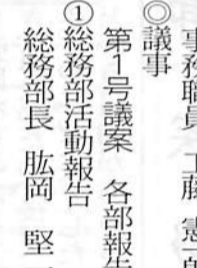 事務職員 工藤 憲
◎議事
第1号議案 各部報告
①総務部活動報告
総務部長 肱岡 堅